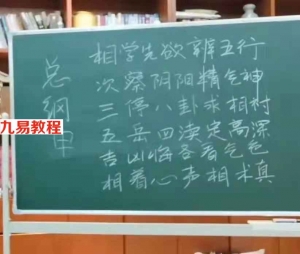 总纲
相学先欲辨五行
次察阴阳精气神
三停八卦求相衬
五岳四渎定高深
吉凶临各看气色
相着心声相术真
九易教程